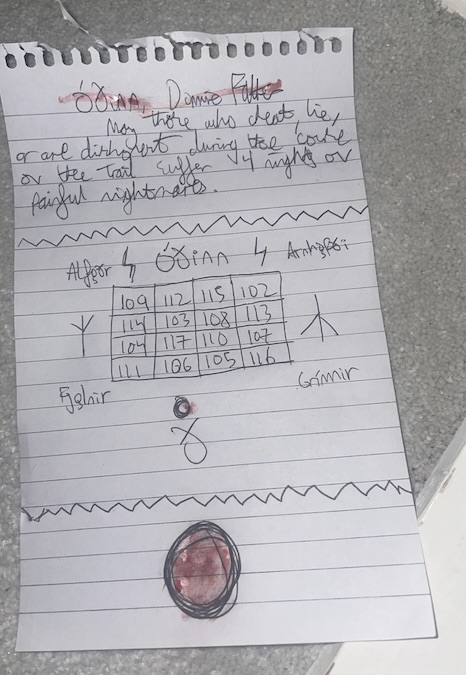 Óðinn, Domine
May those who cheat, lie,
or are dishonest during the
or the trail suffer 4 nights or
Painful nightmares.
Alfǫðr Óðinn
109 112 115 102
114 103 108 113
104 117 110 107
111 106 105 116
Grímnir